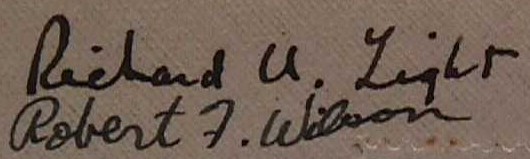 Richard U. Light
Robert F. Wilson